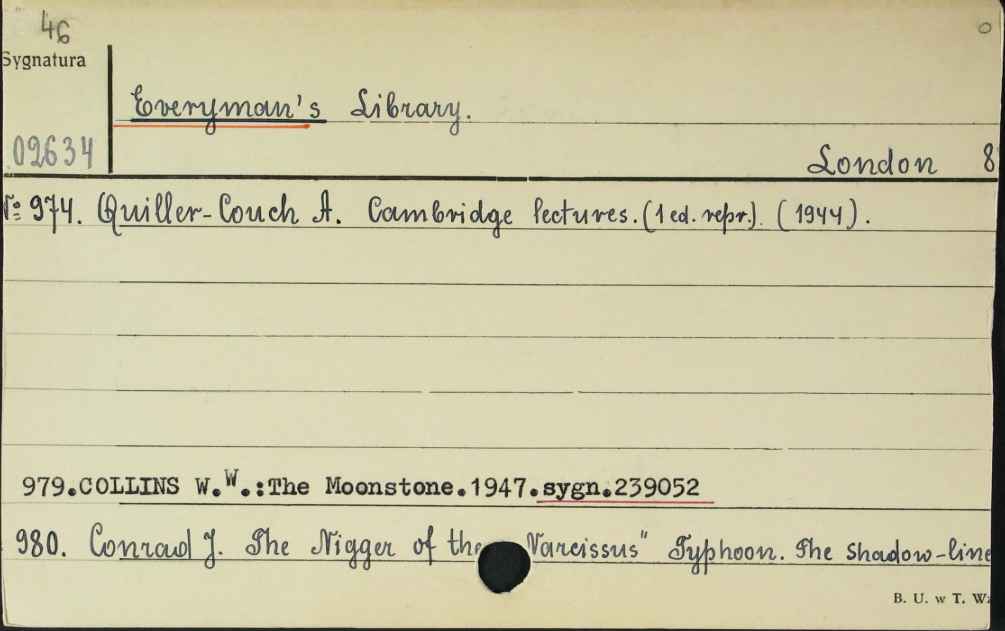 46
Sygnatura
Everyman's Library.
02634
London 8
№ 974. Quiller-Couch A. Cambridge lectures. (1 ed. repr.). (1944).
979.COLLINS W.W.:The Moonstone.1947.sygn.239052
980. Conrad J. The Nigger of the Narcissus" Typhoon. The Shadow-line
B. U. w T. W